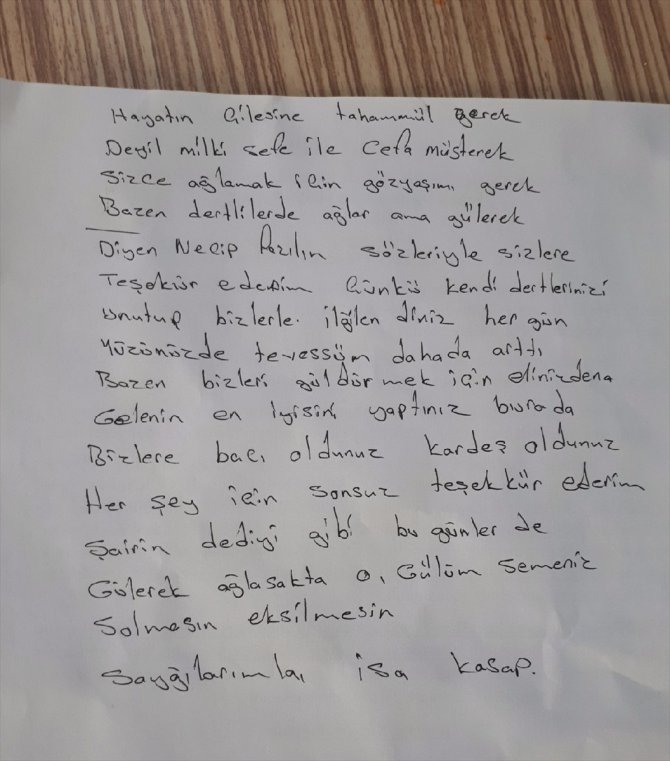 Hayatın Çilesine tahammül gerek
Deyil milki sefe ile Cefa müşterek
Sizce ağlamak için gözyaşımı gerek
Bazen dertlilerde ağlar ama gülerek
Diyen Necip Fazılın sözleriyle sizlere
Teşekür ederim Çünkü kendi dertlerinizi
Unutup bizlerle ilğlen diniz her gün
Yüzünüzde tevessüm dahada arttı
Bazen bizleri güldür mek için elinizden
Gelenin en iyisini yaptınız burada
Bizlere bacı oldunuz kardeş oldunuz
Her şey için sonsuz teşekkür ederim
Şairin dediyi gibi bu günler de
Gülerek ağlasakta o, Gülüm semeniz
Solmasın eksilmesin
Sayğılarımla, isa kasap.